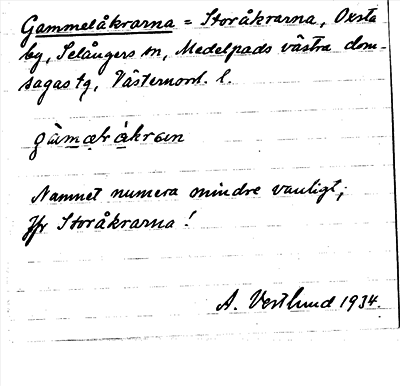 Gammelåkrarna = Storåkrarna, Oxsta
by, Selångers sn, Medelpads västra dom-
sagas tg, Västernorrl. l.
gàmælråkrɑn
Namnet numera mindre vanligt;
Jfr Storåkrarna!
A. Vestlund 1934.